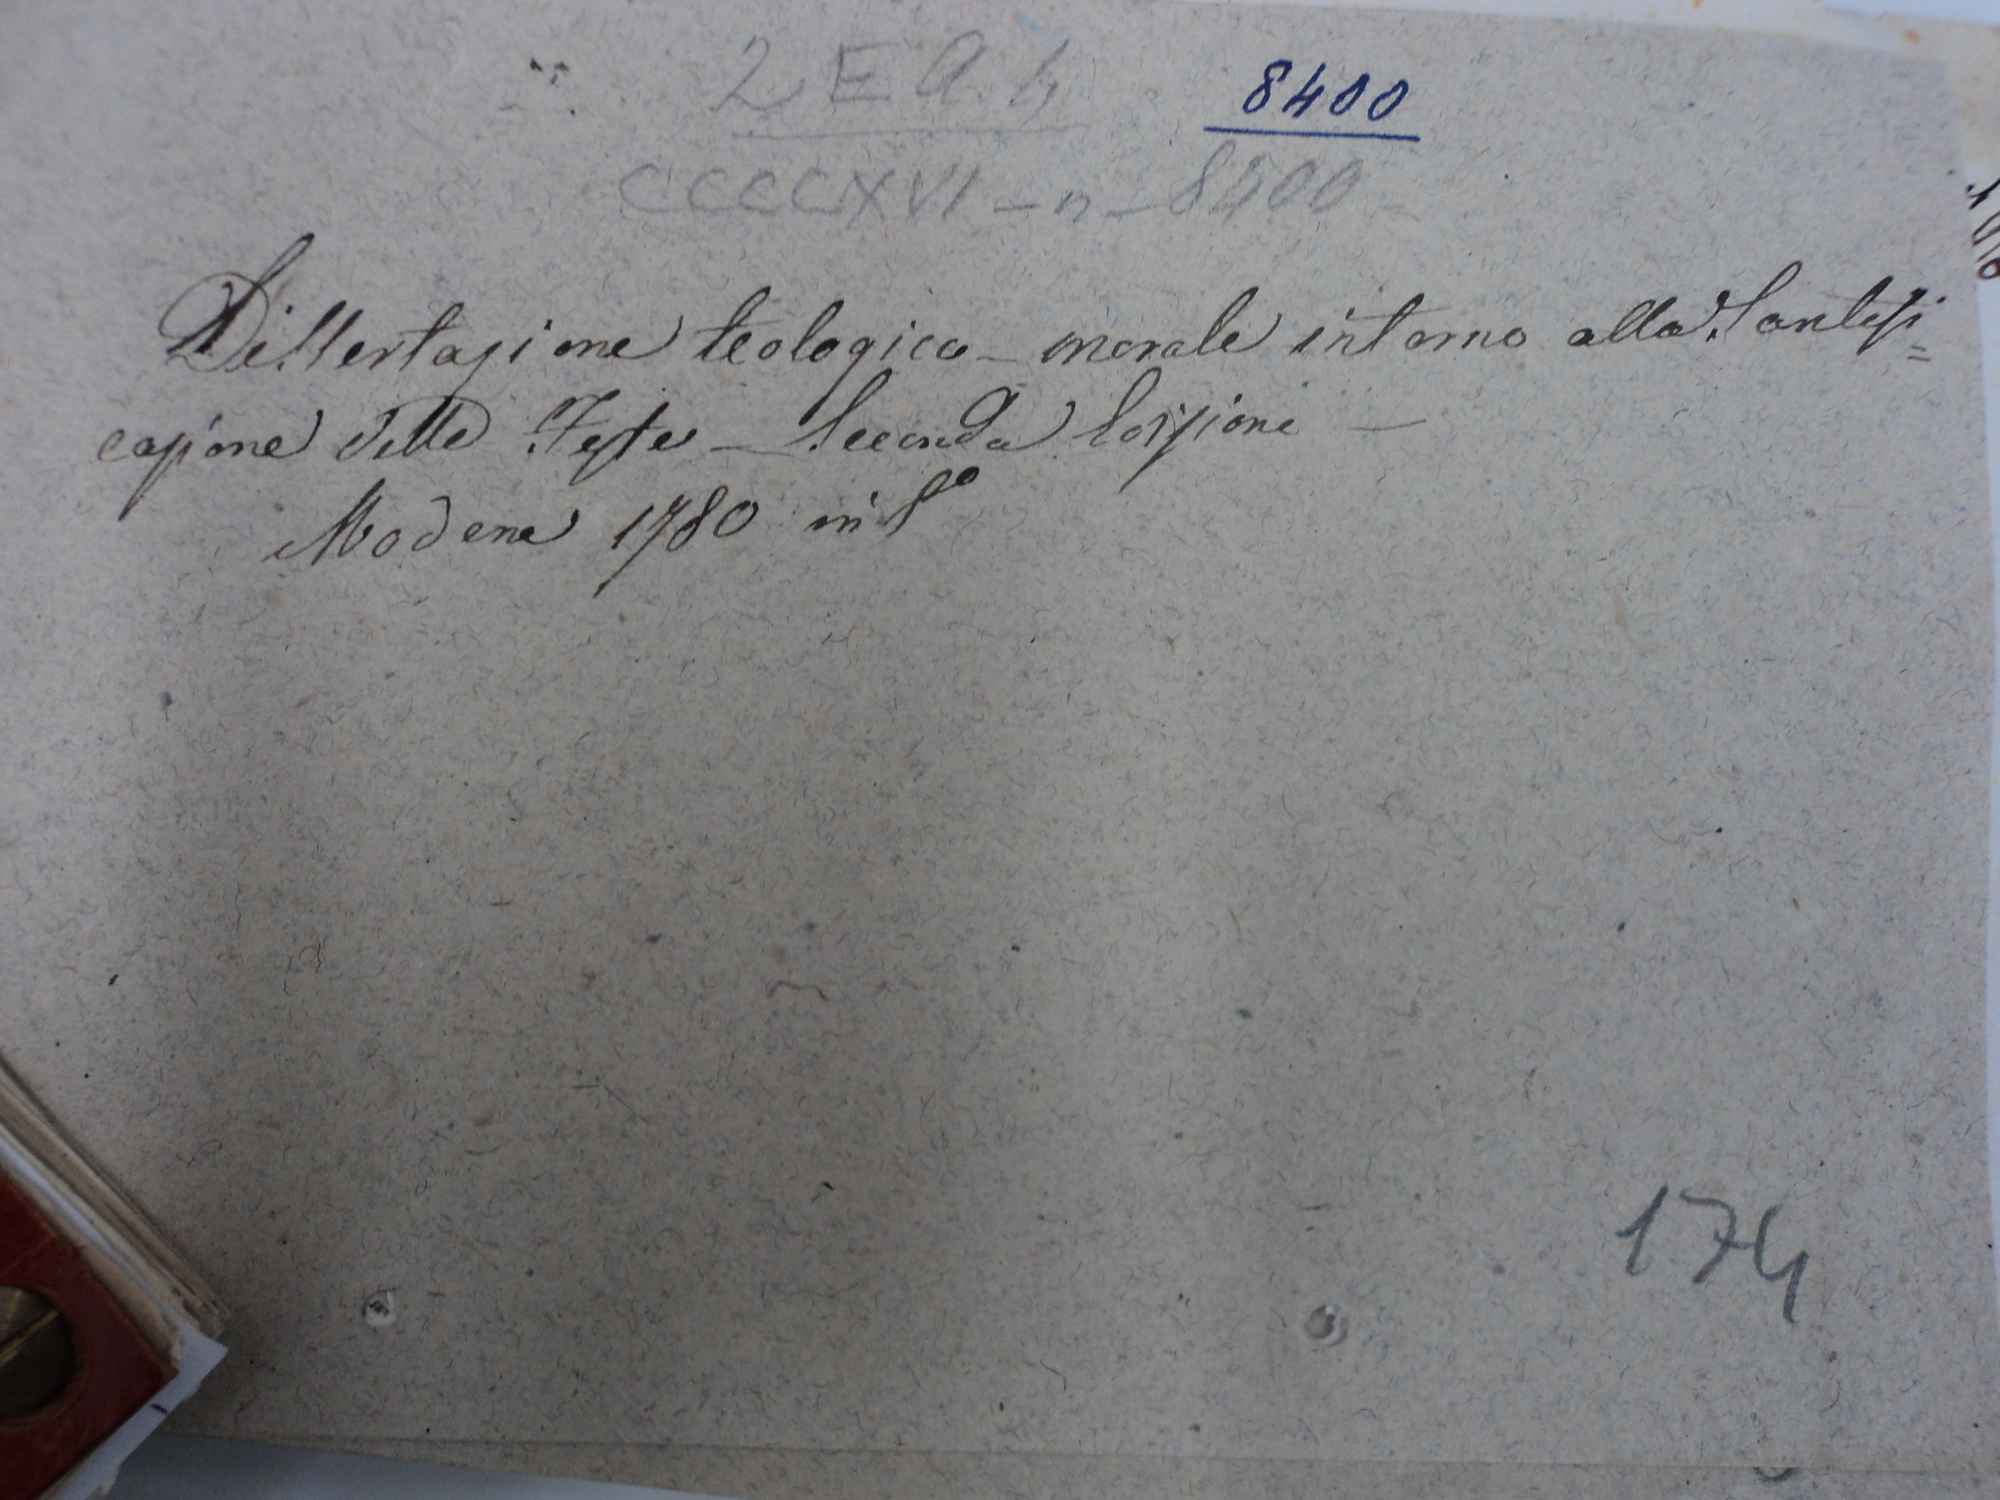 2 E A. 4
8400
CCCCXVI - n - 8400
Dissertazione teologico - morale intorno alla Santifi=
cazione delle Feste - Seconda Edizione -
Modena 1780 in 8º
174